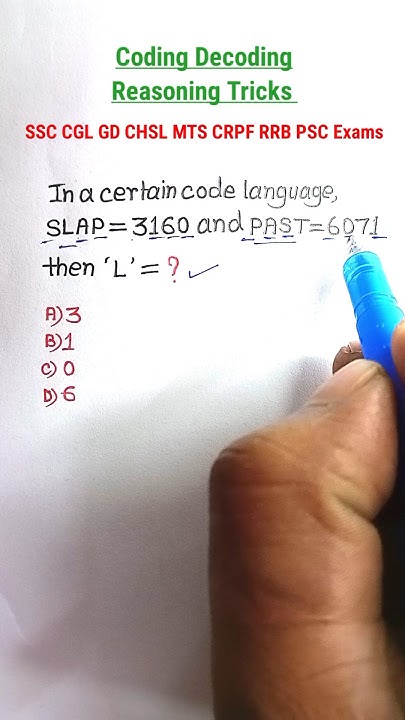 Coding Decoding
Reasoning Tricks
SSC CGL GD CHSL MTS CRPF RRB PSC Exams
In a certain code language,
SLAP = 3160 and PAST = 6071
then 'L' = ?
A) 3
B) 1
C) 0
D) 6